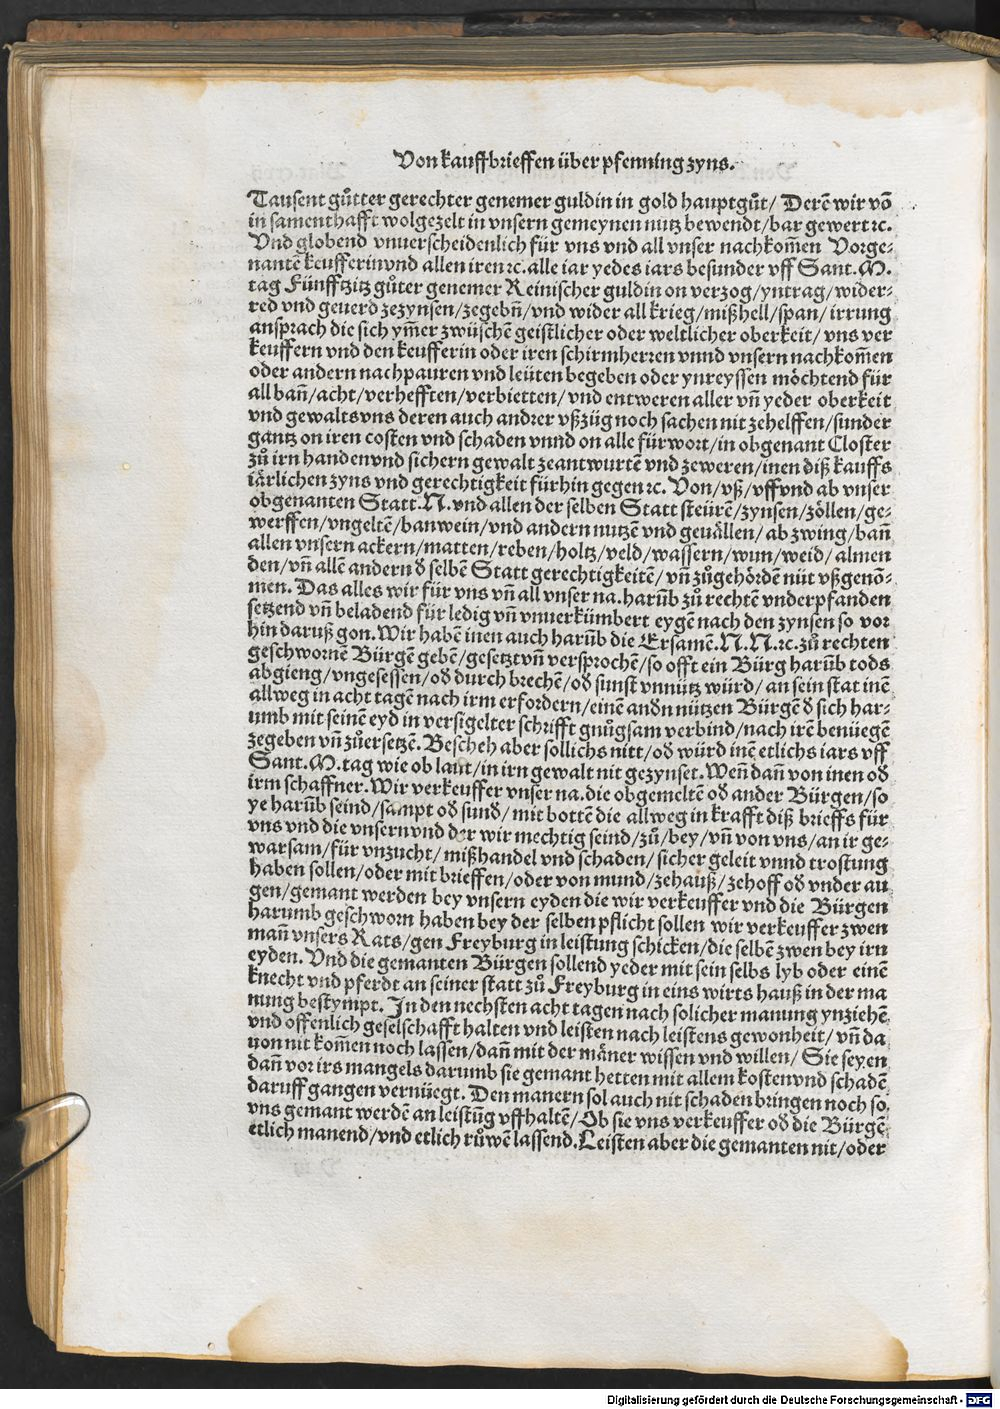 Von kauffbrieffen über pfenning zyns.
Tausent gůtter gerechter genemer guldin in gold hauptgůt/ Derē wir vō
in samenthafft wolgezelt in vnsern gemeynen nutz bewendt/bar gewert ꝛc.
Vnd globend vnuerscheidenlich für vns vnd all vnser nachkom̄en Vorge-
nantē keufferin vnd allen iren ꝛc. alle iar yedes iars besunder vff Sant. M.
tag Fünfftzitz gůter genemer Reinischer guldin on verzog/yntrag/wider-
red vnd geuerd zezynsen/zegebn̄/vnd wider all krieg/mißhell/span/irrung
ansprach die sich ym̄er zwüschē geistlicher oder weltlicher oberkeit/ vns ver
keuffern vnd den keufferin oder iren schirmherren vnnd vnsern nachkom̄en
oder andern nachpauren vnd leüten begeben oder ynreyssen möchtend für
all ban̄/acht/verhefften/verbietten/ vnd entweren aller vn̄ yeder oberkeit
vnd gewalts vns deren auch andrer vßzüg noch sachen nit zehelffen/sunder
gantz on iren costen vnd schaden vnnd on alle fürwort/in obgenant Closter
zů irn handen vnd sichern gewalt zeantwurtē vnd zeweren/inen diß kauffs
iärlichen zyns vnd gerechtigkeit fürhin gegen ꝛc. Von/vß/vff vnd ab vnser
obgenanten Statt. N. vnd allen der selben Statt steürē/zynsen/zöllen/ge-
werffen/vngeltē/banwein/vnd andern nutzen vnd geuällen/ab zwing/ban̄
allen vnsern ackern/matten/reben/holtz/veld/wassern/wun/weid/almen
den/vn̄ allē andern ð selbē Statt gerechtigkeitē/ vn̄ zůgehördē nüt vßgenō-
men. Das alles wir für vns vn̄ all vnser na. harūb zů rechtē vnderpfanden
setzend vn̄ beladend für ledig vn̄ vnuerkümbert eygē nach den zynsen so vor
hin daruß gon. Wir habē inen auch harūb die Ersamē. N. N. ꝛc. zů rechten
geschwornē Bürgē gebē/gesetzt vn̄ versprochē/so offt ein Bürg harūb tods
abgieng/vngesessen/oð durch brechē/oð sunst vnnütz würd/an sein stat inē
allweg in acht tagē nach irm erfordern/einē andn nützen Bürgē ð sich har-
umb mit seinē eyd in versigelter schrifft gnůgsam verbind/nach irē benüegē
zegeben vn̄ zůersetzē. Bescheh aber sollichs nitt/oð würd inē etlichs iars vff
Sant. M. tag wie ob laut/in irn gewalt nit gezynset. Wen̄ dan̄ von inen oð
irm schaffner. Wir verkeuffer vnser na. die obgemeltē oð ander Bürgen/so
ye harūb seind/sampt oð sunð/mit bottē die allweg in krafft diß brieffs für
vns vnd die vnsern vnd der wir mechtig seind/zů/bey/vn̄ von vns/an ir ge-
warsam/für vnzucht/mißhandel vnd schaden/sicher geleit vnnd trostung
haben sollen/oder mit brieffen/oder von mund/zehauß/zehoff oð vnder au
gen/gemant werden bey vnsern eyden die wir verkeuffer vnd die Bürgen
harumb geschworn haben bey der selben pflicht sollen wir verkeuffer zwen
man̄ vnsers Rats/gen Freyburg in leistung schicken/die selbē zwen bey irn
eyden. Vnd die gemanten Bürgen sollend yeder mit sein selbs lyb oder einē
knecht vnd pferdt an seiner statt zů Freyburg in eins wirts hauß in der ma
nung bestympt. In den nechsten acht tagen nach solicher manung ynziehē
vnd offenlich geselschafft halten vnd leisten nach leistens gewonheit/ vn̄ da
uon nit kom̄en noch lassen/dan̄ mit der mäner wissen vnd willen/ Sie seyen
dan̄ vor irs mangels darumb sie gemant hetten mit allem kosten vnd schadē
daruff gangen vernüegt. Den manern sol auch nit schaden bringen noch so
vns gemant werdē an leistūg vffhaltē/ Ob sie vns verkeuffer oð die Bürgē
etlich manend/vnd etlich růwen lassend. Leisten aber die gemanten nit/oder
Digitalisierung gefördert durch die Deutsche Forschungsgemeinschaft - DFG